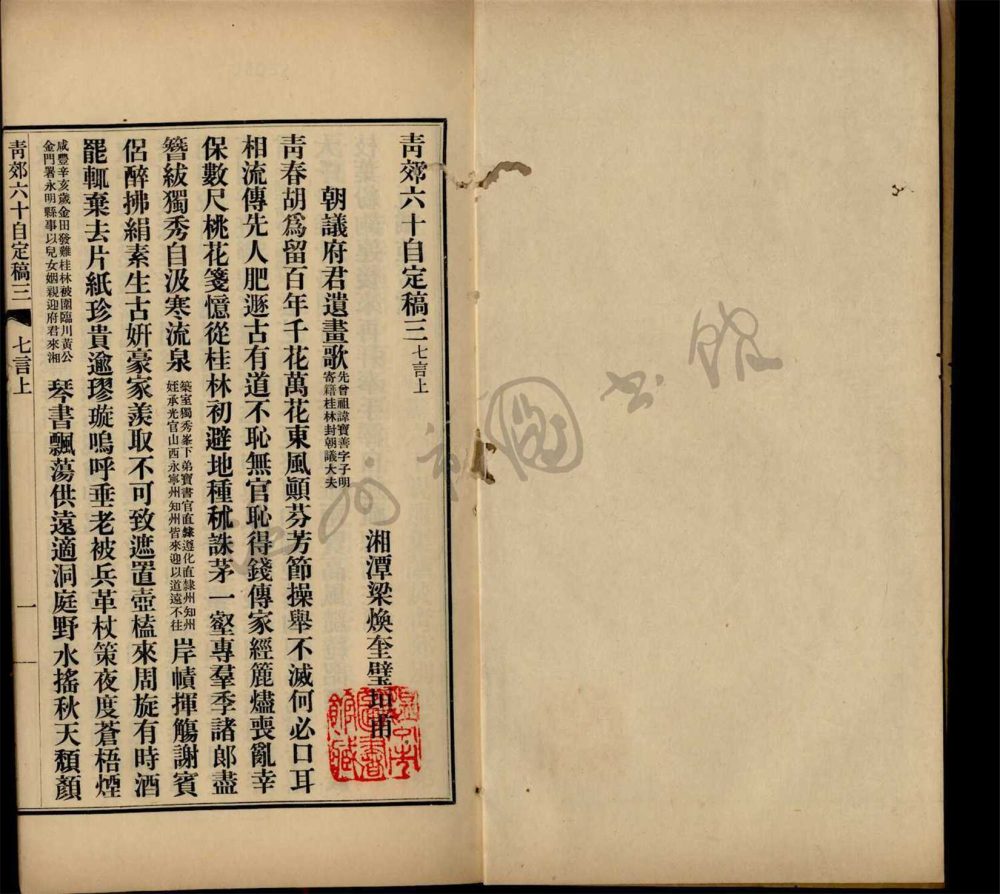 青郊六十自定稿三七言上
湘潭梁煥奎璧垣甫
朝議府君遺畫歌先曾祖諱寶善字子明寄籍桂林封朝議大夫
青春胡爲留百年千花萬花東風顚芬芳節操舉不滅何必口耳
相流傳先人肥遯古有道不恥無官恥得錢傳家經簏燼喪亂幸
保數尺桃花箋憶從桂林初避地種秫誅茅一壑專羣季諸郎盡
簪紱獨秀自汲寒流泉築室獨秀峯下弟寶書官直隸遵化直隸州知州姪承光官山西永寧州知州皆來迎以道遠不往岸幘揮觴謝賓
侶醉拂絹素生古姸豪家羨取不可致遮置壺榼來周旋有時酒
罷輒棄去片紙珍貴逾璆璇嗚呼垂老被兵革杖策夜度蒼梧煙
咸豐辛亥歲金田發難桂林被圍臨川黃公金門署永明縣事以兒女姻親迎府君來湘琴書飄蕩供遠適洞庭野水搖秋天頹顏
青郊六十自定稿三 七言上 一